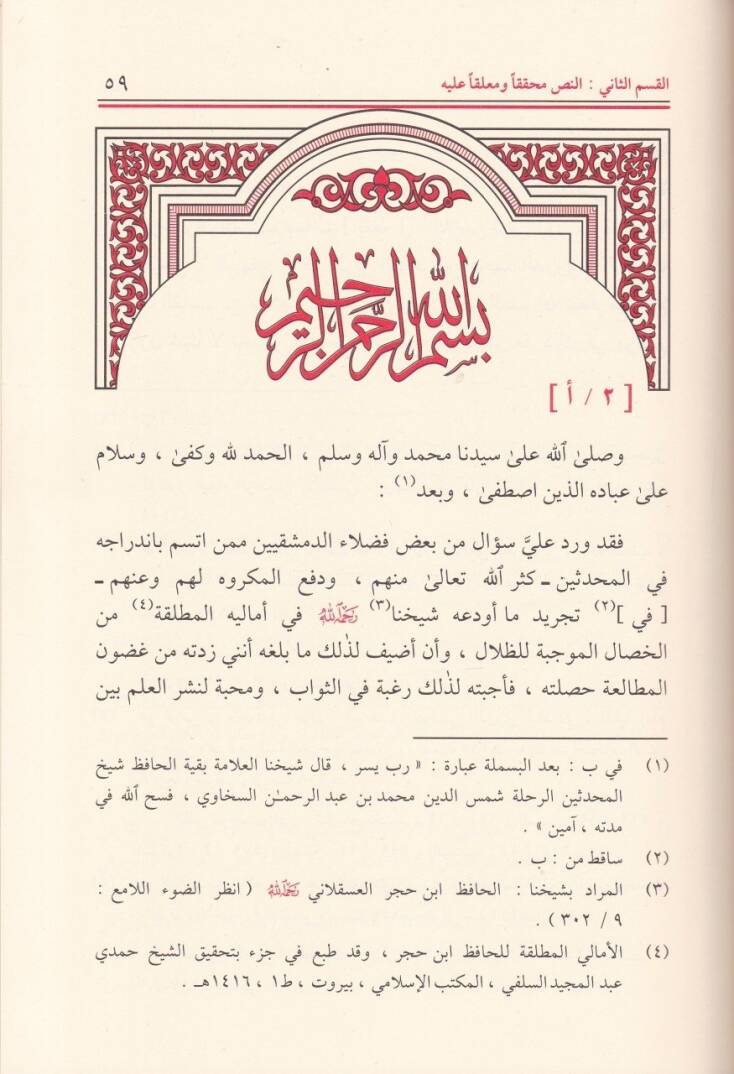 القسم الثاني : النص محققاً ومعلقاً عليه ٥٩
بسم الله الرحمن الرحيم
[ ٢ / أ ]
وصلىٰ ٱلله علىٰ سيدنا محمد وآله وسلم ، الحمد لله وكفىٰ ، وسلام
علىٰ عباده الذين اصطفىٰ ، وبعد(١) :
فقد ورد عليَّ سؤال من بعض فضلاء الدمشقيين ممن اتسم باندراجه
في المحدثين ـ كثر ٱلله تعالىٰ منهم ، ودفع المكروه لهم وعنهم ـ
[ في ](٢) تجريد ما أودعه شيخنا(٣) رحمه الله في أماليه المطلقة(٤) من
الخصال الموجبة للظلال ، وأن أضيف لذٰلك ما بلغه أنني زدته من غضون
المطالعة حصلته ، فأجبته لذٰلك رغبة في الثواب ، ومحبة لنشر العلم بين
(١) في ب : بعد البسملة عبارة : « رب يسر ، قال شيخنا العلامة بقية الحافظ شيخ
المحدثين الرحلة شمس الدين محمد بن عبد الرحمـٰن السخاوي ، فسح ٱلله في
مدته ، آمين » .
(٢) ساقط من : ب .
(٣) المراد بشيخنا : الحافظ ابن حجر العسقلاني رحمه الله ( انظر الضوء اللامع :
٩ / ٣٠٢ ) .
(٤) الأمالي المطلقة للحافظ ابن حجر ، وقد طبع في جزء بتحقيق الشيخ حمدي
عبد المجيد السلفي ، المكتب الإسلامي ، بيروت ، ط١ ، ١٤١٦هـ .